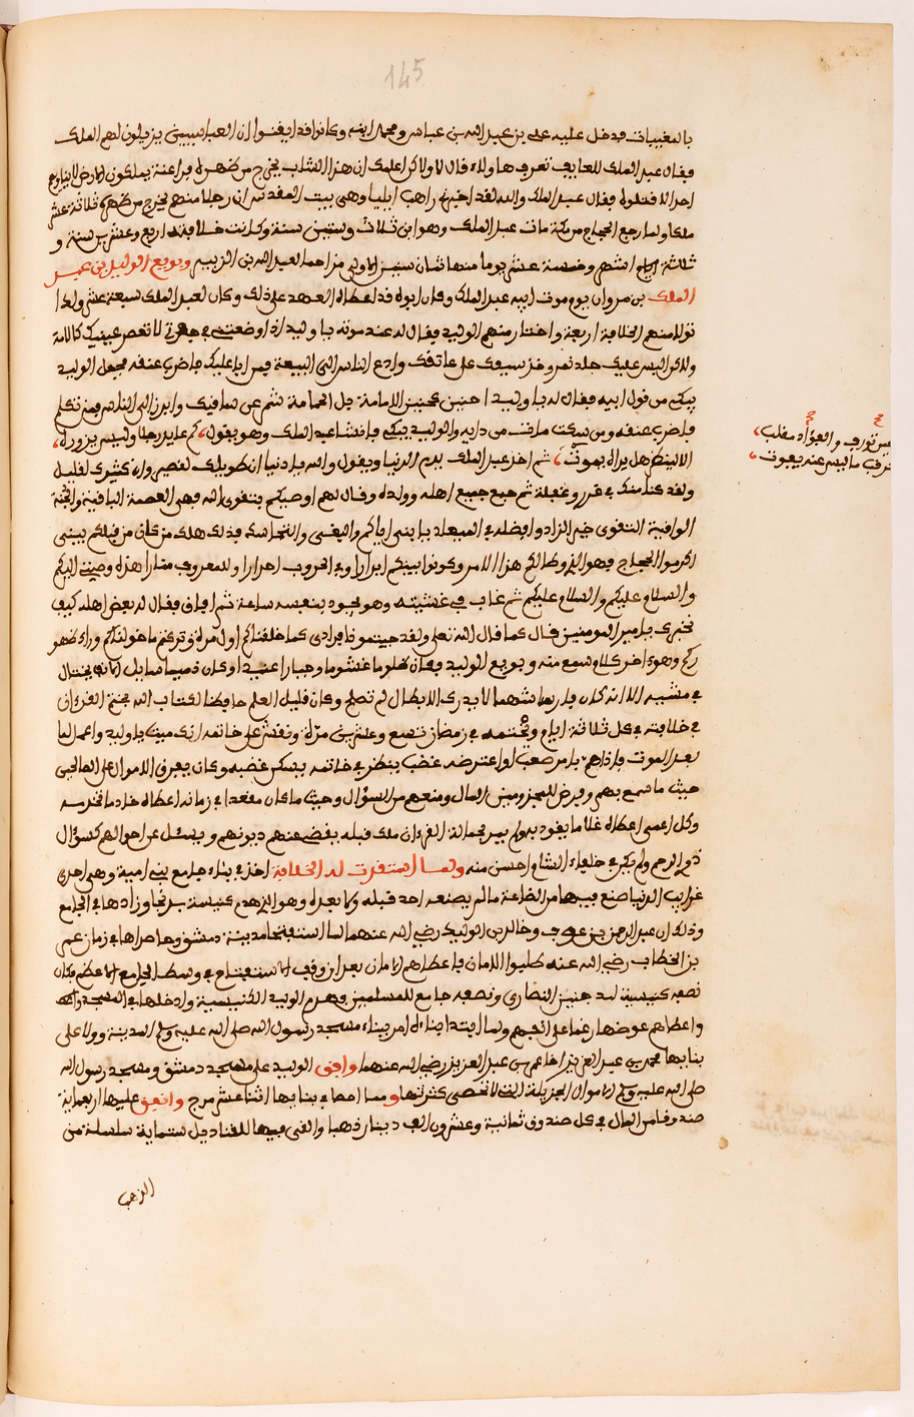 145
بالمغيبات فدخل عليه علي بن عبد الله بن عباس ومحمد ابنه وكانوا قد ايقنوا ان العباسيين يزيلون لهم الملك
فقال عبد الملك للعايف تعرف هاولاء قال لا ولاكن اعلمك ان هذا الشاب يخرج من ظهره فراعنة يملكون الارض لا يناويهم
احد الا قتلوه فقال عبد الملك والله لقد اخبرني راهب ايليا وهي بيت المقدس ان رجلا منهم يخرج من ظهره ثلاثة عشر
ملكا ولما رجع الحجاج من مكة مات عبد الملك وهو ابن ثلاث وستين سنة وكانت خلافته اربع وعشرين سنة و
ثلاثة اشهر وخمسة عشر يوما منها ثمان سنين الاولى مزاحما لعبد الله بن الزبير وبويع الوليد بن عبد
الملك بن مروان يوم موت ابيه عبد الملك وكان ابوه قد اعطاه العهد على ذلك وكان لعبد الملك سبعة عشر ولدا
تولا منهم الخلافة اربعة واختار منهم الوليد فقال له عند موته يا وليد اذا وضعتني في حفرتي لا تعصر عينيك كالامة
ولاكن البس عليك جلد نمر وخذ سيفك على عاتقك وادع الناس الى البيعة فمن ابا عليك فاضرب عنقه فجعل الوليد
يبكي من قول ابيه فقال له يا وليد احنين كحنين الامامة بل الحمامة شمر عن ساقيك وابرز الى الناس فمن تكلم
فاضرب عنقه ومن سكت مات من دايه والوليد يبكي فانشا عبد الملك وهو يقول كم عايد رجلا وليس يزوره
الا لينظر هل يراه يموت ثم اخذ عبد الملك يذم الدنيا ويقول والله يا دنيا ان طويلك لقصير وان كثيرك لقليل
ولقد كنا منك في غرور وغفلة ثم جمع جميع اهله وولده وقال لهم اوصيكم بتقوى الله فهي العصمة الباقية والجنة
الواقية التقوى خير الزاد وافضله في الميعاد يا بني اياكم والبغي والتحاسد فبذلك هلك من كان من قبلكم يا بني
اكرموا الحجاج فهو الذي وطا لكم هذا الامر وكونوا بينكم ابرارا وفي الحروب احرارا وللمعروف منارا هذه وصيتي اليكم
والسلام عليكم والسلام عليكم ثم غاب في غشيته وهو يجود بنفسه ساعة ثم افاق فقال له بعض اهله كيف
تجدك يا امير المومنين قال كما قال الله تعلى ولقد جيتمونا فرادى كما خلقناكم اول مرة وتركتم ما خولناكم وراء ظهو
ركم وهو اخر كلام سمع منه وبويع الوليد وكان ظلوما غشوما وجبارا عنيدا وكان دميما سايل الانف يختال
في مشيه الا انه كان فارسا شهما لا يدرك الابطال لم تصلح وكان قليل العلم حافظا لكتاب الله يختم القرءان
في خلافته في كل ثلاثة ايام ويختمه في رمضان تسع وعشرين مرة ونقش على خاتمه انك ميت يا وليد واعمل لما
بعد الموت فاذا هم بامر صعب او اعترضه غضب ينظر في خاتمه يسكن غضبه وكان يفرق الاموال على الصالحين
حيث ما سمع بهم وفرض للمجزومين المال ومنعهم من السؤال وحيث ما كان مقعدا في زمانه اعطاه خادما تخدمه
وكل اعمى اعطاه غلاما يقوده ولم يمر بحملة القرءان ملك قبله يقضي عنهم ديونهم ويسئل عن احوالهم كسؤال
ذوي الرحم ولم يكن في خلفاء الشام احسن منه ولما استقرت له الخلافة اخذ في بناء جامع بني امية وهي احدى
غرايب الدنيا صنع فيها من الطاعة ما لم يصنعه احد قبله ولا بعده وهو الذي هدم كنيسة يوحنا وزادها في الجامع
وذلك ان عبد الرحمن بن عوف وخالد بن الوليد رضي الله عنهما لما استفتحا مدينة دمشق وحاصراها في زمان عمر
بن الخطاب رضي الله عنه طلبوا الامان فاعطاهم الامان بعد ان وقف الاستفتاح في وسط الجامع الاعظم فكان
نصفه كنيسة لمذهبين النصارى ونصفه جامع للمسلمين فهدم الوليد الكنيسة وادخلها في المسجد
واعطاهم عوضها رغما على انفهم ولما ابتدا بناءه امر ببناء مسجد رسول الله صلى الله عليه وسلم المدينة وولا على
بنايها محمد بن عبد العزيز اخا عمر بن عبد العزيز رضي الله عنهما وافنى الوليد على مسجد دمشق ومسجد رسول الله
صلى الله عليه وسلم الاموال الجزيلة التي لا تحصى كثرتها ومما احصا في بنايها اثنا عشر مرج وانفق عليها اربعماية
صندوقا من المال في كل صندوق ثمانية وعشرون الف دينار ذهبا والقى فيها للقناديل ستماية سلسلة من
الذهب